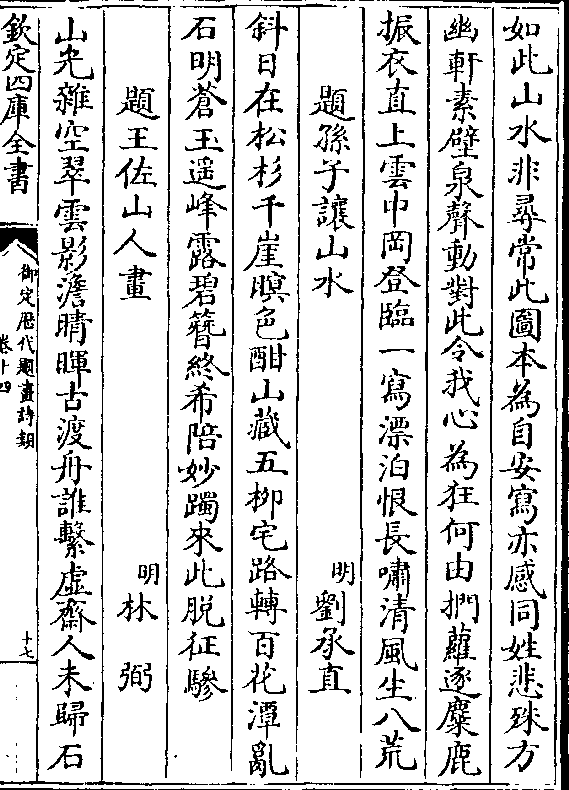 如此山水非尋常此圖本為自安寫亦感同姓悲殊方
幽軒素壁泉聲動對此令我心為狂何由捫蘿逐麋鹿
振衣直上雲中岡登臨一寫漂泊恨長嘯清風生八荒
題孫子讓山水
明劉承直
斜日在松杉千崖暝色酣山藏五柳宅路轉百花潭亂
石明蒼玉遥峰露碧簪終希陪妙躅來此脱征驂
題王佐山人畫
明林弼
山光雜空翠雲影澹晴暉古渡舟誰繫虛齋人未歸石
欽定四庫全書
御定歴代題畫詩類
卷十四
十七